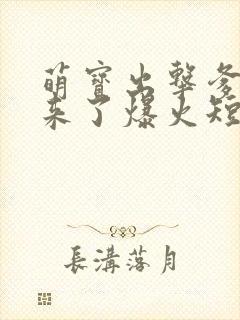 萌寶出擊爹
来了爆火短
長溝落月